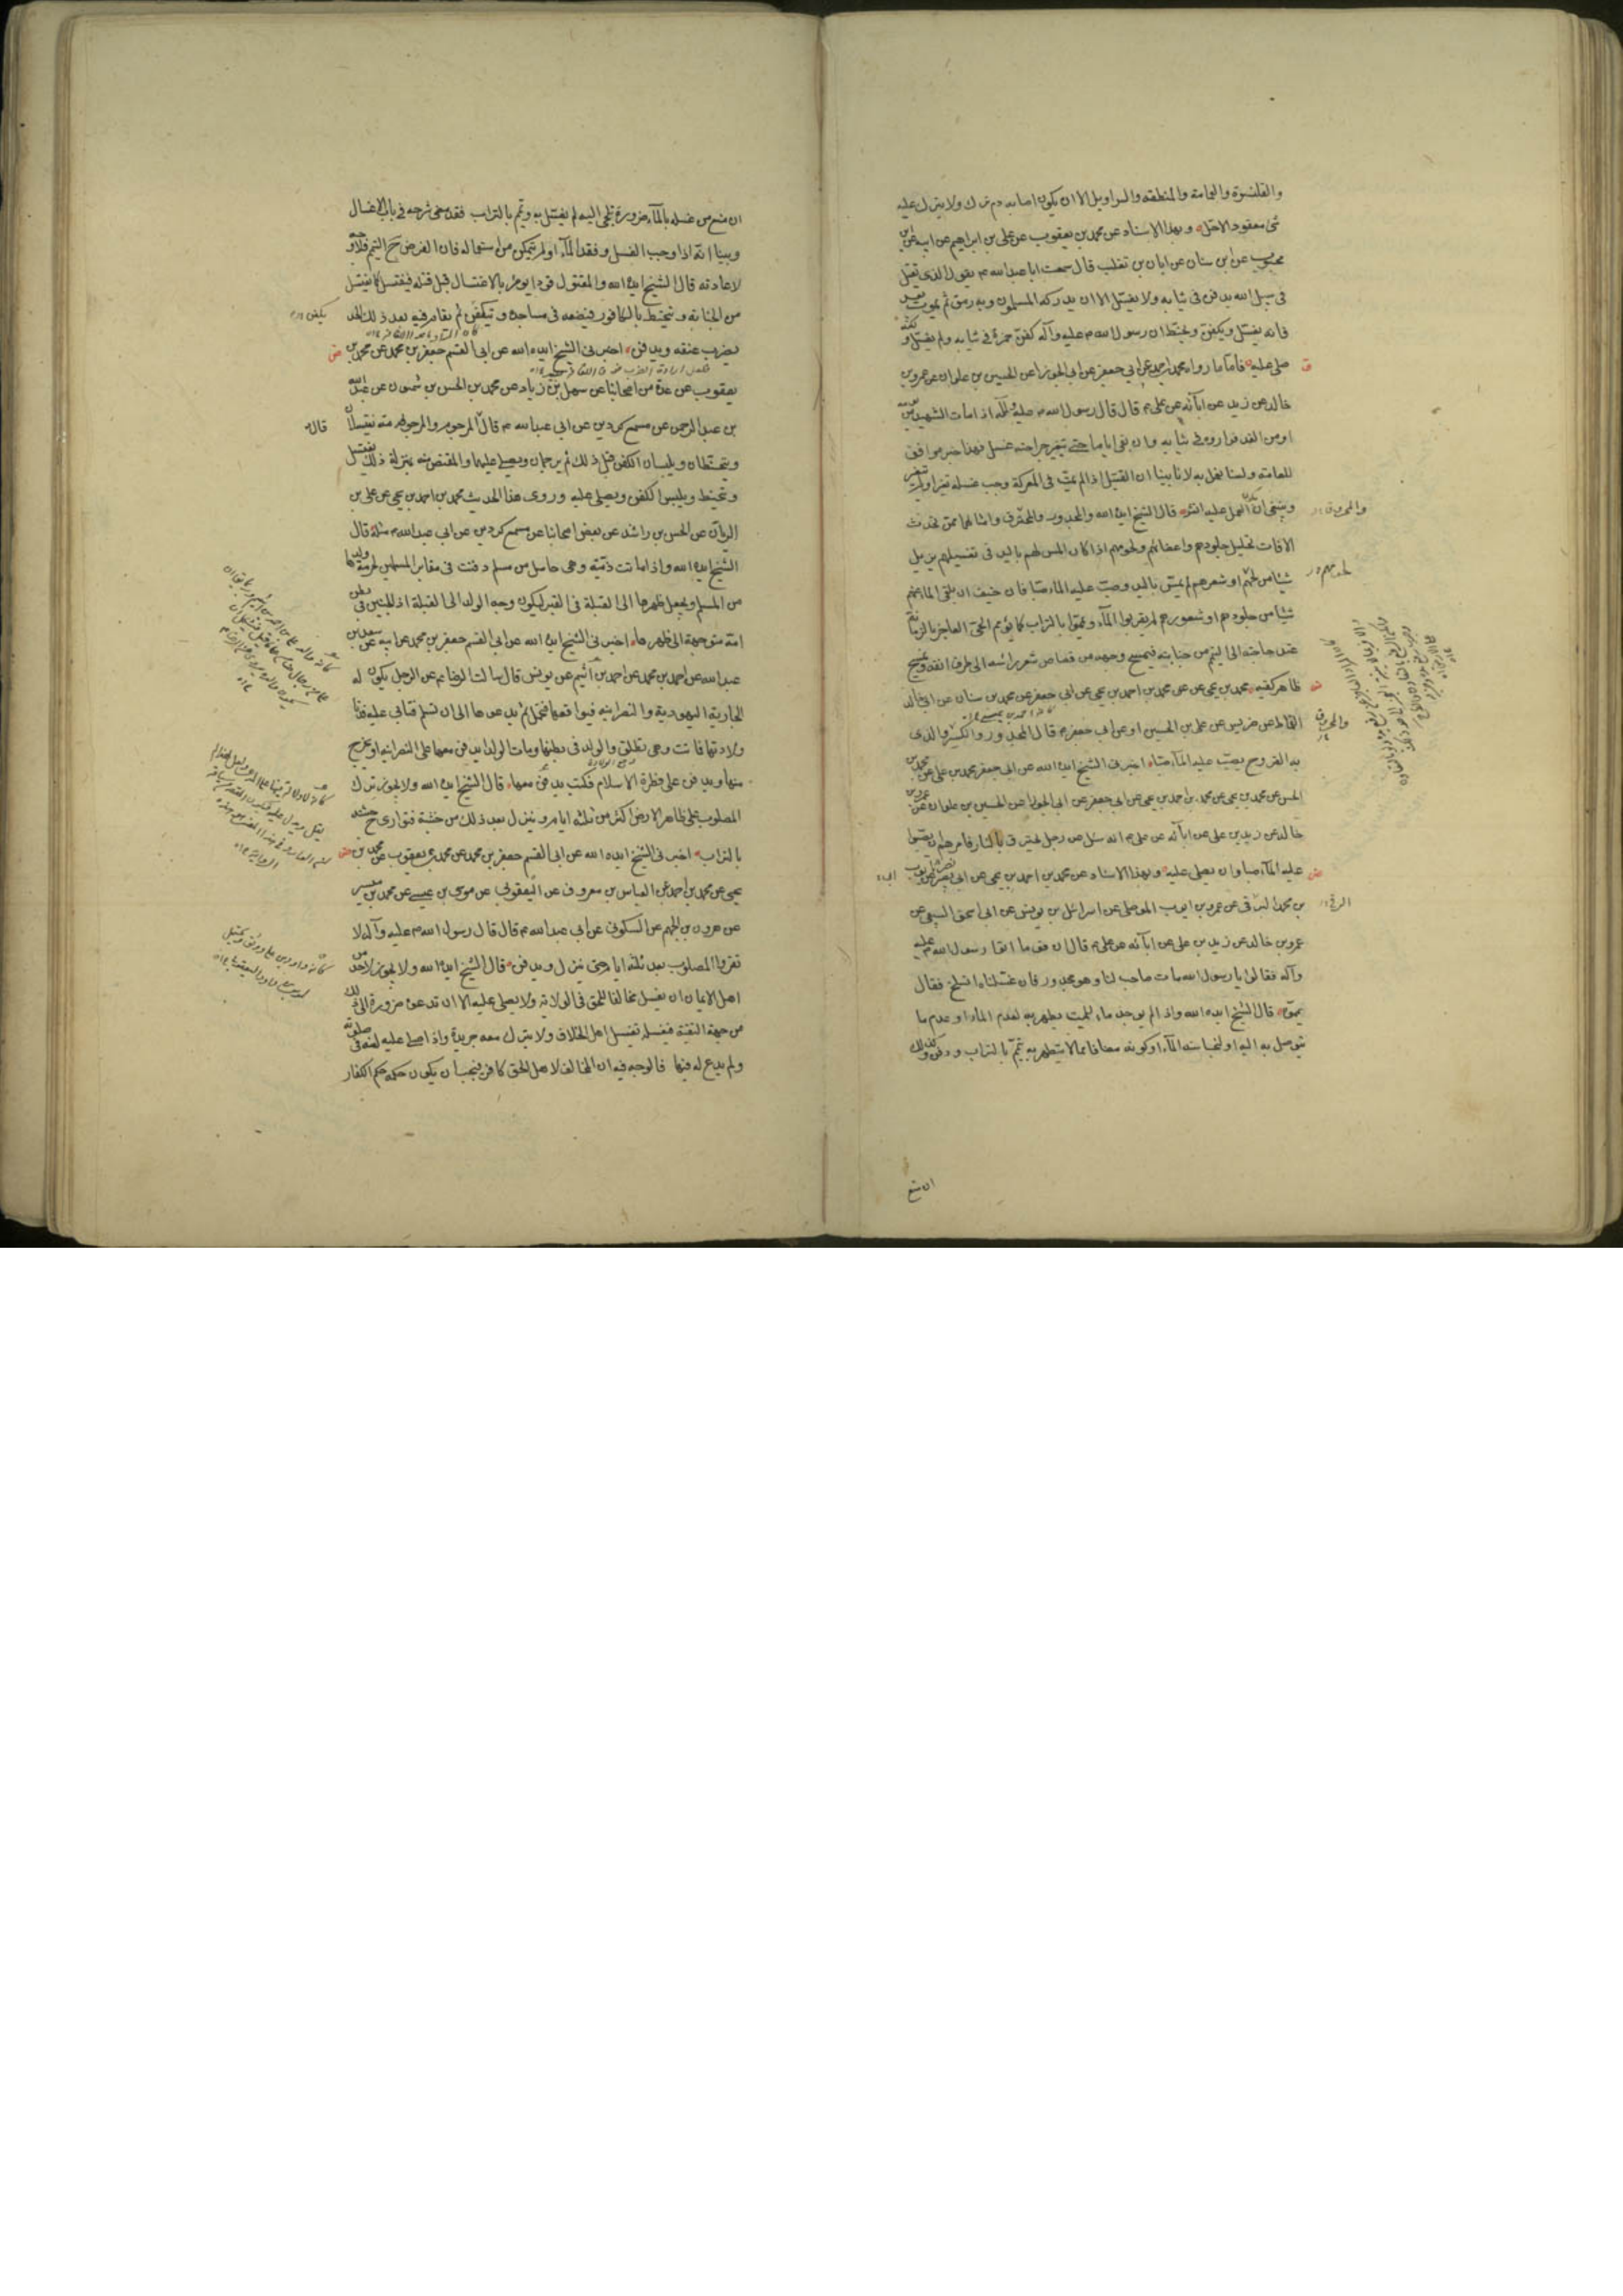 والقلنسوة والعمامة والمنطقة والسراويل الا ان يكون اصابه دم ترك ولا يترك عليه
شئ معقود الا حل وبهذا الاسناد عن محمد بن يعقوب عن علي بن ابراهيم عن ابيه عن ابن
محبوب عن ابن سنان عن ابان بن تغلب قال سمعت ابا عبد الله ع يقول الذي يقتل
في سبيل الله يدفن في ثيابه ولا يغسل الا ان يدركه المسلمون وبه رمق ثم يموت بعد
فانه يغسل ويكفن ويحنط ان رسول الله ص عليه وآله كفن حمزة في ثيابه ولم يغسله و
صلى عليه فاما ما رواه محمد بن احمد عن ابي جعفر عن ابي الجوزا عن الحسين بن علوان عن عمرو بن
خالد عن زيد عن ابآئه عن علي ع قال قال رسول الله ص اذا مات الشهيد من يومه
او من الغد فواروه في ثيابه وان بقي اياما حتى تتغير جراحته غسل فهذا خبر موافق
للعامة ولسنا نعمل به لانا بينا ان القتيل اذا لم يمت في المعركة وجب غسله تغير او لم يتغير
وينبغي ان العمل عليه انش قال الشيخ ايده الله والمجدور والمحترق وامثالهما ممن تحدث
الافات تحليل جلودهم واعضائهم ولحومهم اذا كان المس لهم باليد في تغسيلهم يزيل
شيئا من لحمهم او شعرهم لم يمس باليد وصب عليه الماء صبا فان خيف ان يلقى الماء عنهم
شيئا من جلودهم او شعورهم لم يقربوا المآء ويمموا بالتراب كما يؤمم الحي العاجز بالزمانة
عند حاجته الى التيمم من جنابته فيمسح وجهه من قصاص شعر راسه الى طرف انفه ويمسح
ظاهر كفيه محمد بن يحيى عن محمد بن احمد بن يحيى عن ابي جعفر عن محمد بن سنان عن ابي خالد
القماط عن ضريس عن علي بن الحسين او عن ابي جعفر ع قال المجدور والكسير والذي
به القروح يصب عليه المآء صبا اخبرني الشيخ ايده الله عن ابي جعفر محمد بن علي عن محمد بن
الحسن عن محمد بن يحيى عن محمد بن احمد بن يحيى عن ابي جعفر عن ابي الجوزا عن الحسين بن علوان عن عمرو بن
خالد عن زيد بن علي عن ابآئه عن علي ع انه سئل عن رجل يحترق بالنار فامرهم ان يصبوا
عليه المآء صبا وان يصلى عليه وبهذا الاسناد عن محمد بن احمد بن يحيى عن ابي بصير عن ايوب
بن محمد الرقي عن عمرو بن ايوب الموصلي عن اسرائيل بن يونس عن ابي اسحق السبيعي عن
عمرو بن خالد عن زيد بن علي عن ابآئه عن علي ع قال ان قوما اتوا رسول الله ص عليه
وآله فقالوا يا رسول الله مات صاحب لنا وهو مجدور فان غسلناه انسلخ فقال
يمموه قال الشيخ ايده الله واذا لم يوجد ماء للميت يطهر به لعدم الماء او عدم ما
يتوصل به اليه او لنجاسة المآء او كونه مضافا مما لا يتطهر به يمم بالتراب ودفن وكذلك
ان منع
والمحروق
لحومهم
والمحروق
الرقي
ان منع من غسله بالمآء ضرورة تلجئ اليه لم يغسل به ويمم بالتراب فقد مضى شرحه في باب الاغسال
وبينا انه اذا وجب الغسل وفقد المآء او لم يتمكن من استعماله فان الفرض ح التيمم فلا وجه
لاعادته قال الشيخ ايده الله والمقتول قودا يؤمر بالاغتسال قبل قتله فيغتسل كما يغتسل
من الجنابة ويتحنط بالكافور فيضعه في مساجده ويتكفن ثم يقام فيه بعد ذلك الحد
بضرب عنقه ويدفن اخبرني الشيخ ايده الله عن ابي القسم جعفر بن محمد عن محمد بن
يعقوب عن عدة من اصحابنا عن سهل بن زياد عن محمد بن الحسن بن شمون عن عبد الله
بن عبد الرحمن عن مسمع كردين عن ابي عبد الله ع قال المرجوم والمرجومة يغتسلان
ويتحنطان ويلبسان الكفن قبل ذلك ثم يرجمان ويصلى عليهما والمقتص منه بمنزلة ذلك يغتسل
ويتحنط ويلبس الكفن ويصلى عليه وروى هذا الحديث محمد بن احمد بن يحيى عن علي بن
الريان عن الحسن بن راشد عن بعض اصحابنا عن مسمع كردين عن ابي عبد الله ع مثله قال
الشيخ ايده الله واذا ماتت ذمية وهي حامل من مسلم دفنت في مقابر المسلمين لحرمة ولدها
من المسلم ويجعل ظهرها الى القبلة في القبر ليكون وجه الولد الى القبلة اذ الجنين في بطن
امه متوجهة الى ظهرها اخبرني الشيخ ايده الله عن ابي القسم جعفر بن محمد عن ابيه عن سعد بن
عبد الله عن احمد بن محمد عن احمد بن اشيم عن يونس قال سالت الرضا ع عن الرجل يكون له
الجارية اليهودية والنصرانية فيواقعها فتحمل ثم يدعوها الى ان تسلم فتابى عليه فدنا
ولادتها فماتت وهي تطلق والولد في بطنها ومات الولد ايدفن معها على النصرانية او يخرج
منها ويدفن على فطرة الاسلام فكتب يدفن معها قال الشيخ ايده الله ولا يجوز ترك
المصلوب على ظاهر الارض اكثر من ثلثة ايام وينزل بعد ذلك من خشبة فتوارى ح جثته
بالتراب اخبرني الشيخ ايده الله عن ابي القسم جعفر بن محمد عن محمد بن يعقوب عن محمد بن
يحيى عن محمد بن احمد عن العباس بن معروف عن اليعقوبي عن موسى بن عيسى عن محمد بن ميسر
عن هرون بن الجهم عن السكوني عن ابي عبد الله ع قال قال رسول الله ص عليه وآله لا
تقروا المصلوب بعد ثلثة ايام حتى ينزل ويدفن قال الشيخ ايده الله ولا يجوز لاحد من
اهل الايمان ان يغسل مخالفا للحق في الولاية ولا يصلي عليه الا ان تدعوه ضرورة الى ذلك
من جهة التقية فيغسله تغسيل اهل الخلاف ولا يترك معه جريدة واذا صلى عليه لعنه في صلوته
ولم يدع له فيها فالوجه فيه ان المخالف لاهل الحق كافر فيجب ان يكون حكمه حكم الكفار
يكفن
قال